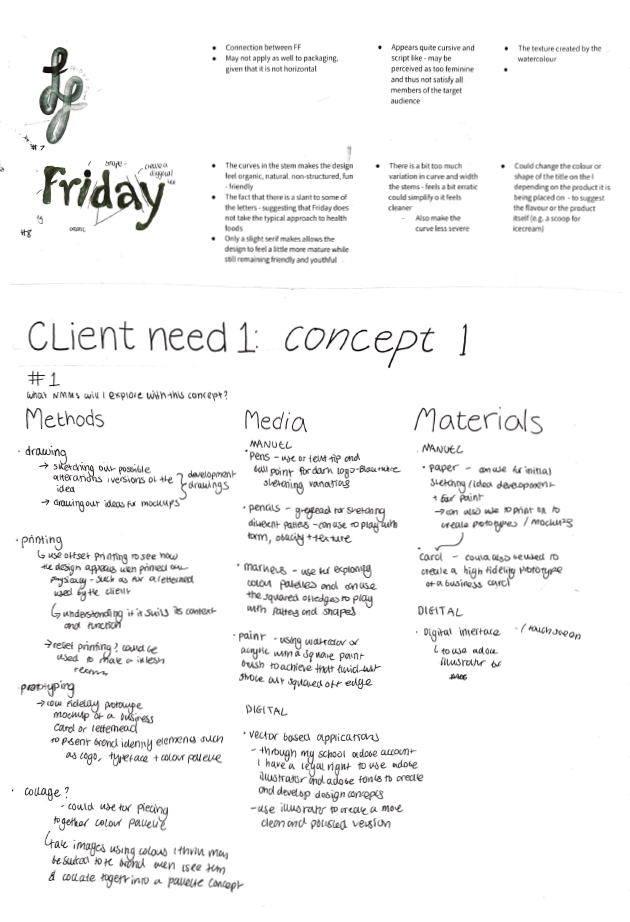 Connection between FF
May not apply as well to packaging,
given that it is not horizontal
Appears quite cursive and
script like - may be
perceived as too feminine
and thus not satisfy all
members of the target
audience
The texture created by the
watercolour
#7
Friday
#8
The curves in the stem makes the design
feel organic, natural, non-structured, fun
- friendly
The fact that there is a slant to some of
the letters - suggesting that Friday does
not take the typical approach to health
foods
Only a slight serif makes allows the
design to feel a little more mature while
still remaining friendly and youthful
There is a bit too much
variation in curve and width
the stems - feels a bit erratic
could simplify o it feels
cleaner
- Also make the
curve less severe
Could change the colour or
shape of the title on the I
depending on the product it is
being placed on - to suggest
the flavour or the product
itself (e.g. a scoop for
icecream)
CLient need 1: concept 1
#1
What NMMs will I explore with this concept?
Methods
· drawing
→ sketching out possible
alterations / versions of the
idea
development
drawings
→ drawing out ideas for mockups
· printing
↳ use offset printing to see how
the design appears when printed
physically - such as for a letterhead
used by the client
↳ understanding if it suits its context
and function
used to make a
prototyping
→ low fidelity prototype
mockup of a business
card or letterhead
to present brand identity elements such
as logo, typeface + colour palette
· collage?
- could use for piecing
together colour palette
↳ take images using colours I think may
be suited to the brand when I see them
& collate together into a pallette concept
Media
MANUEL
· Pens - use of felt tip and
ball point for dark logo
sketching variations
· pencils - for sketching
different - can use to play with
form, opacity + texture
· markers - use for exploring
colour palettes and can use
the squared off edges to play
with and shapes
· paint - using watercolor or
acrylic with a square paint
brush to achieve that fluid
stroke but squared off edge
DIGITAL
· vector based applications
- through my school adobe account
I have a legal right to use adobe
illustrator and adobe fonts to create
and develop design concepts
- use illustrator to create a more
clean and polished version
Materials
MANUEL
· paper - can use for initial
sketching / idea development
+ for paint
→ can also use to print on to
create prototypes / mockups
card - could also be used to
create a high fidelity prototype
of a business card
DIGITAL
· Digital interface · / touchscreen
↳ to use adobe
illustrator